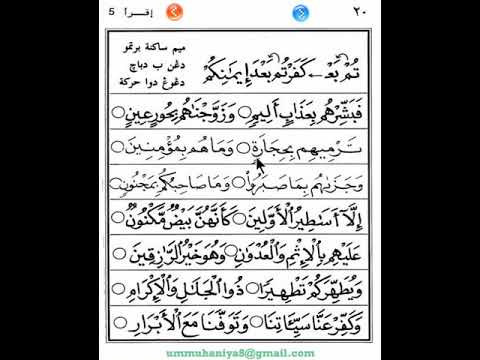 ٢٠ إقرأ 5
تُمْ بَعْـ ← كَفَرْتُمْ بَعْدَ إِيمَـٰنِكُمْ
ميم ساكنة برتمو
دڠن ب دباچ
دڠوڠ دوا حركة
فَبَشِّرْهُمْ بِعَذَابٍ أَلِيمٍ ○ وَزَوَّجْنَـٰهُمْ بِحُورٍ عِينٍ ○
تَرْمِيهِمْ بِحِجَارَةٍ ○ وَمَا هُمْ بِمُؤْمِنِينَ ○
وَجَزَىٰهُمْ بِمَا صَبَرُوا۟ ○ وَمَا صَاحِبُكُمْ بِمَجْنُونٍ ○
إِلَّآ أَسَـٰطِيرُ ٱلْأَوَّلِينَ ○ كَأَنَّهُنَّ بَيْضٌ مَّكْنُونٌ ○
عَلَيْهِمْ بِٱلْإِثْمِ وَٱلْعُدْوَٰنِ ○ وَهُوَ خَيْرُ ٱلرَّٰزِقِينَ ○
وَيُطَهِّرَكُمْ تَطْهِيرًا ○ ذُوا ٱلْجَلَـٰلِ وَٱلْإِكْرَامِ ○
وَكَفِّرْ عَنَّا سَيِّـَٔاتِنَا ○ وَتَوَفَّنَا مَعَ ٱلْأَبْرَارِ ○
ummuhaniya8@gmail.com